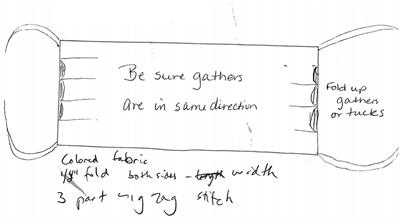 Be sure gathers
Are in same direction
Fold up
gathers
or tucks
Colored fabric
1/4" fold both sides - length width
3 part zig zag stitch